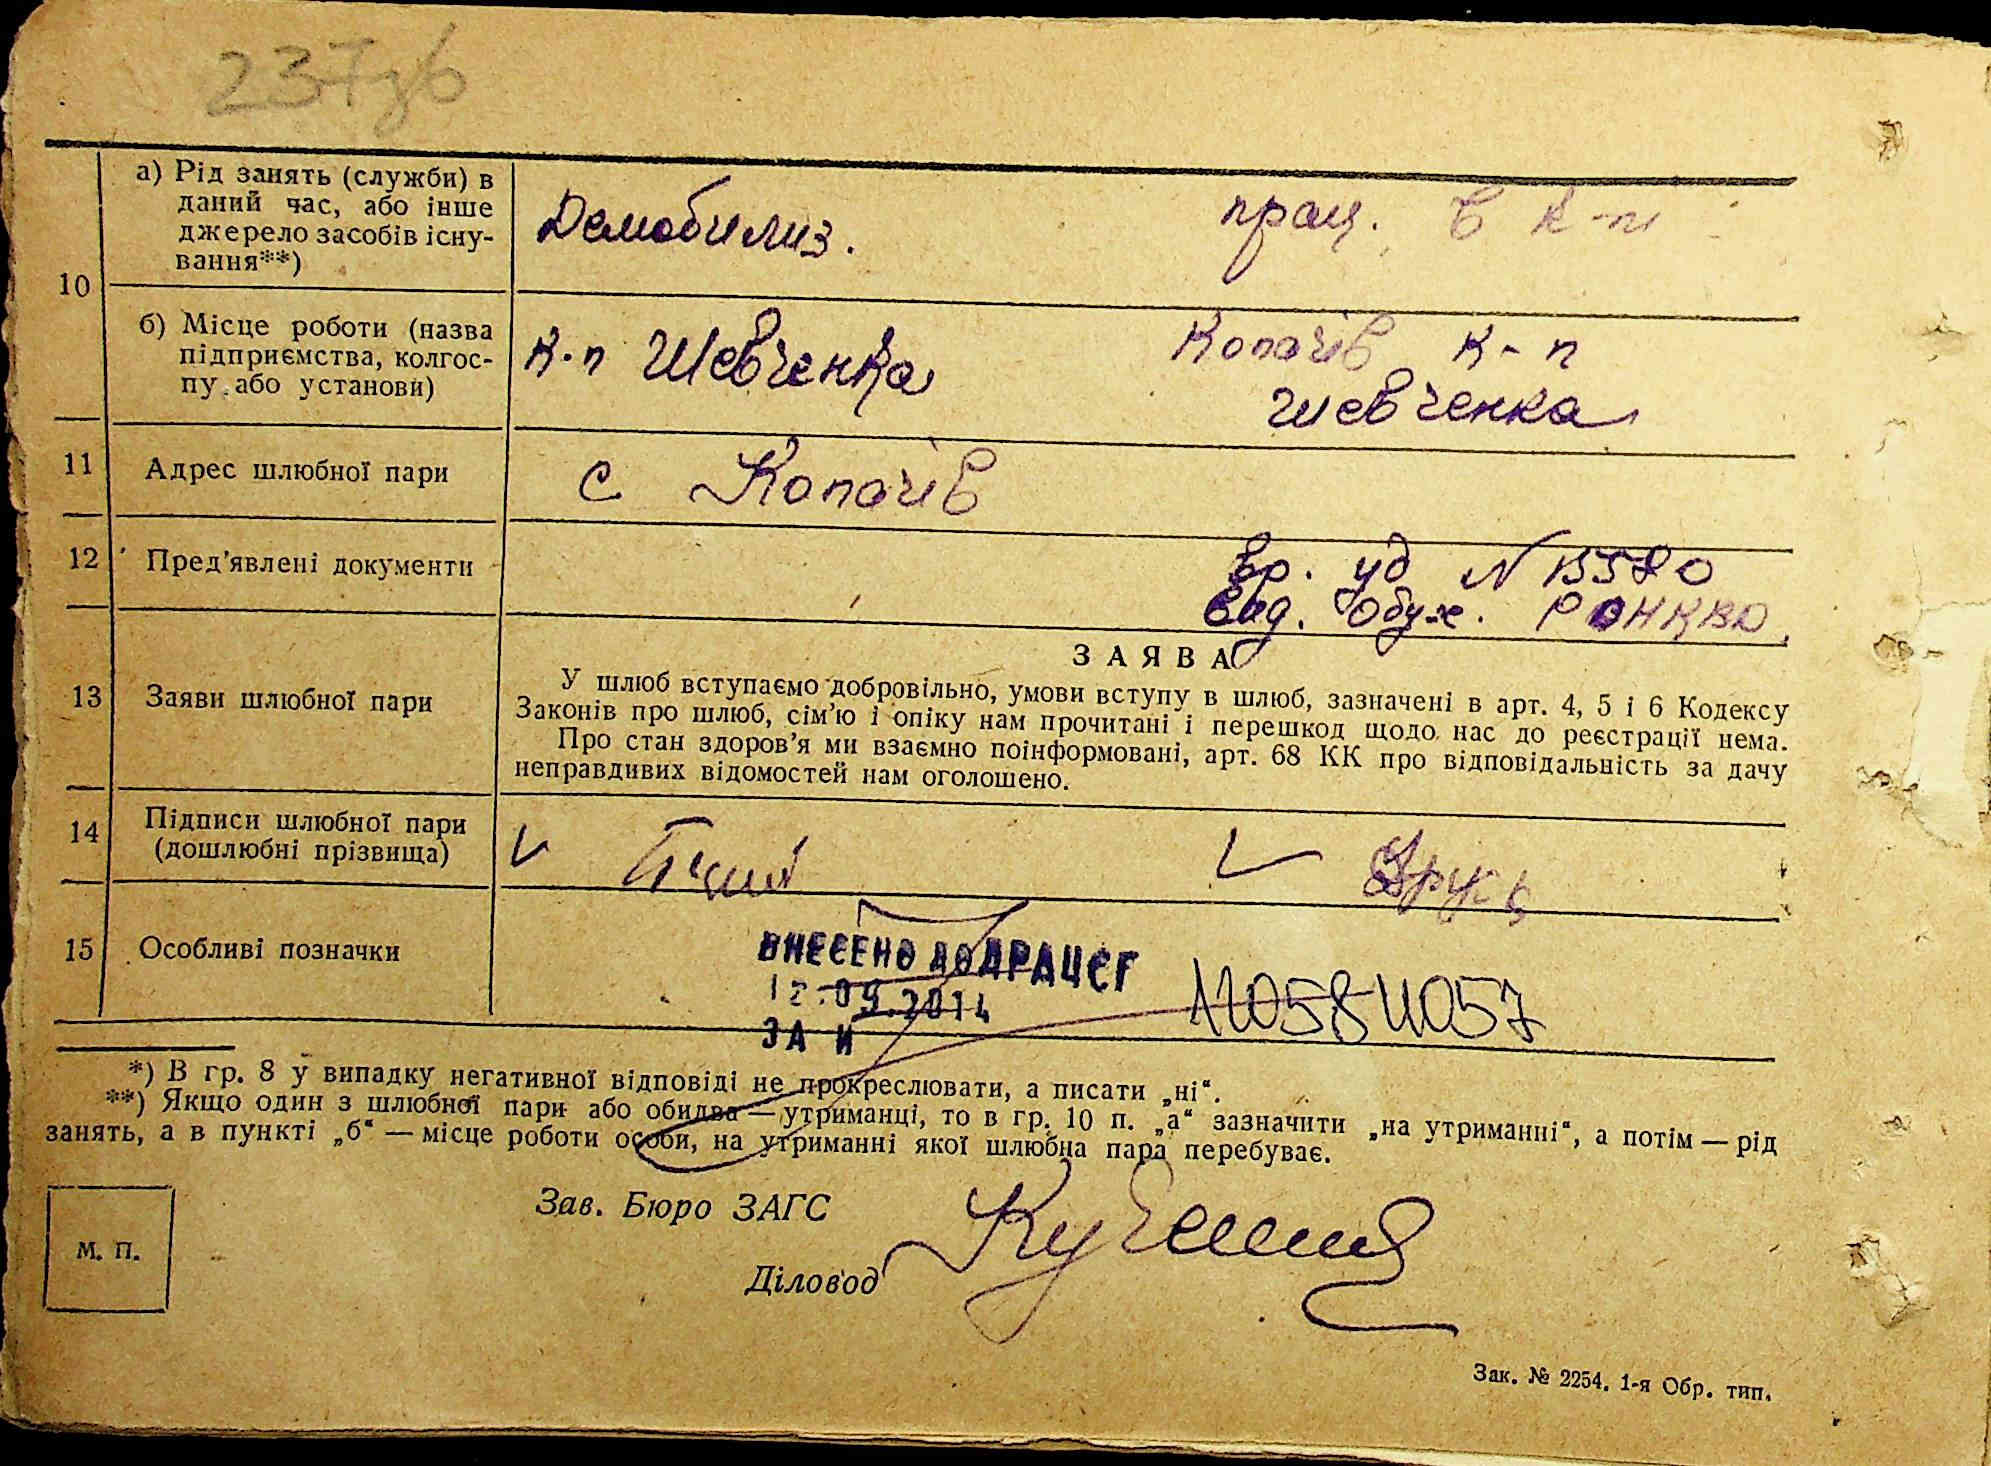 237зв
10
а) Рід занять (служби) в
даний час, або інше
джерело засобів існу-
вання**)
Демобилиз.
прац. в к-п
б) Місце роботи (назва
підприємства, колгос-
пу або установи)
к-п Шевченка
Копачів к-п
Шевченка
11
Адрес шлюбної пари
с Копачів
12
Пред'явлені документи
вр. уд N
вид. Обух. РОНКВД.
13
Заяви шлюбної пари
ЗАЯВА
У шлюб вступаємо добровільно, умови вступу в шлюб, зазначені в арт. 4, 5 і 6 Кодексу
Законів про шлюб, сім'ю і опіку нам прочитані і перешкод щодо нас до реєстрації нема.
Про стан здоров'я ми взаємно поінформовані, арт. 68 КК про відповідальність за дачу
неправдивих відомостей нам оголошено.
14
Підписи шлюбної пари
(дошлюбні прізвища)
15
Особливі позначки
ВНЕСЕНО ДО ДРАЦСГ
12.09.2014
ЗА №
*) В гр. 8 у випадку негативної відповіді не прокреслювати, а писати „ні“.
**) Якщо один з шлюбної пари або обидва — утриманці, то в гр. 10 п. „а“ зазначити „на утриманні“, а потім — рід
занять, а в пункті „б“ — місце роботи особи, на утриманні якої шлюбна пара перебуває.
Зав. Бюро ЗАГС
Діловод
М. П.
Зак. № 2254. 1-я Обр. тип.